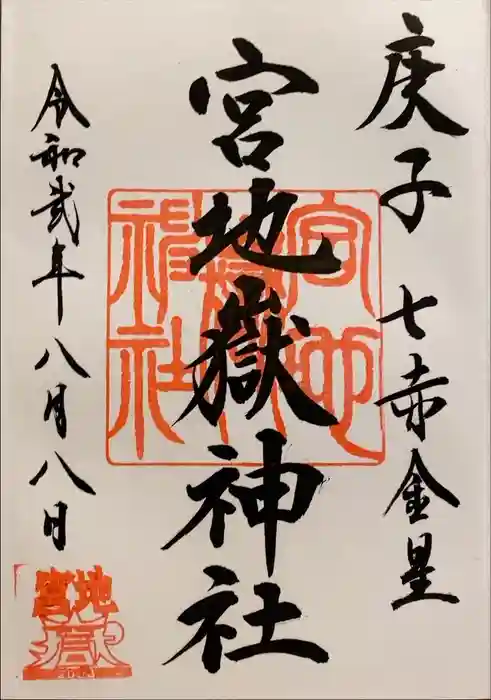 庚子 七赤金星
宮地嶽神社
令和弐年八月八日
宮地嶽神社
宮地嶽